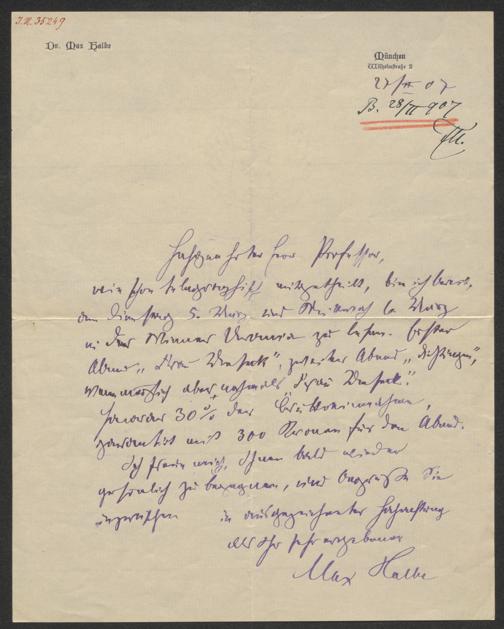 I.N. 35249
Dr. Max Halbe
München
Wilhelmstraße 2
27/II 07
B. 28/II 907
Hochgeehrter Herr Professor,
wie schon telegraphisch mitgetheilt, bin ich bereit,
am Dienstag 5. März und Mittwoch 6. März
in der Wiener Urania zu lesen. Erster
Abend „Frau Meseck", zweiter Abend
aber nochmals Frau Meseck".
Honorar 30% der Bruttoeinnahme,
garantirt mit 300 Kronen für den Abend.
Ich freue mich, Ihnen bald wieder
persönlich zu begegnen, und begrüße Sie
inzwischen in ausgezeichneter Hochachtung
als Ihr sehr ergebener
Max Halbe